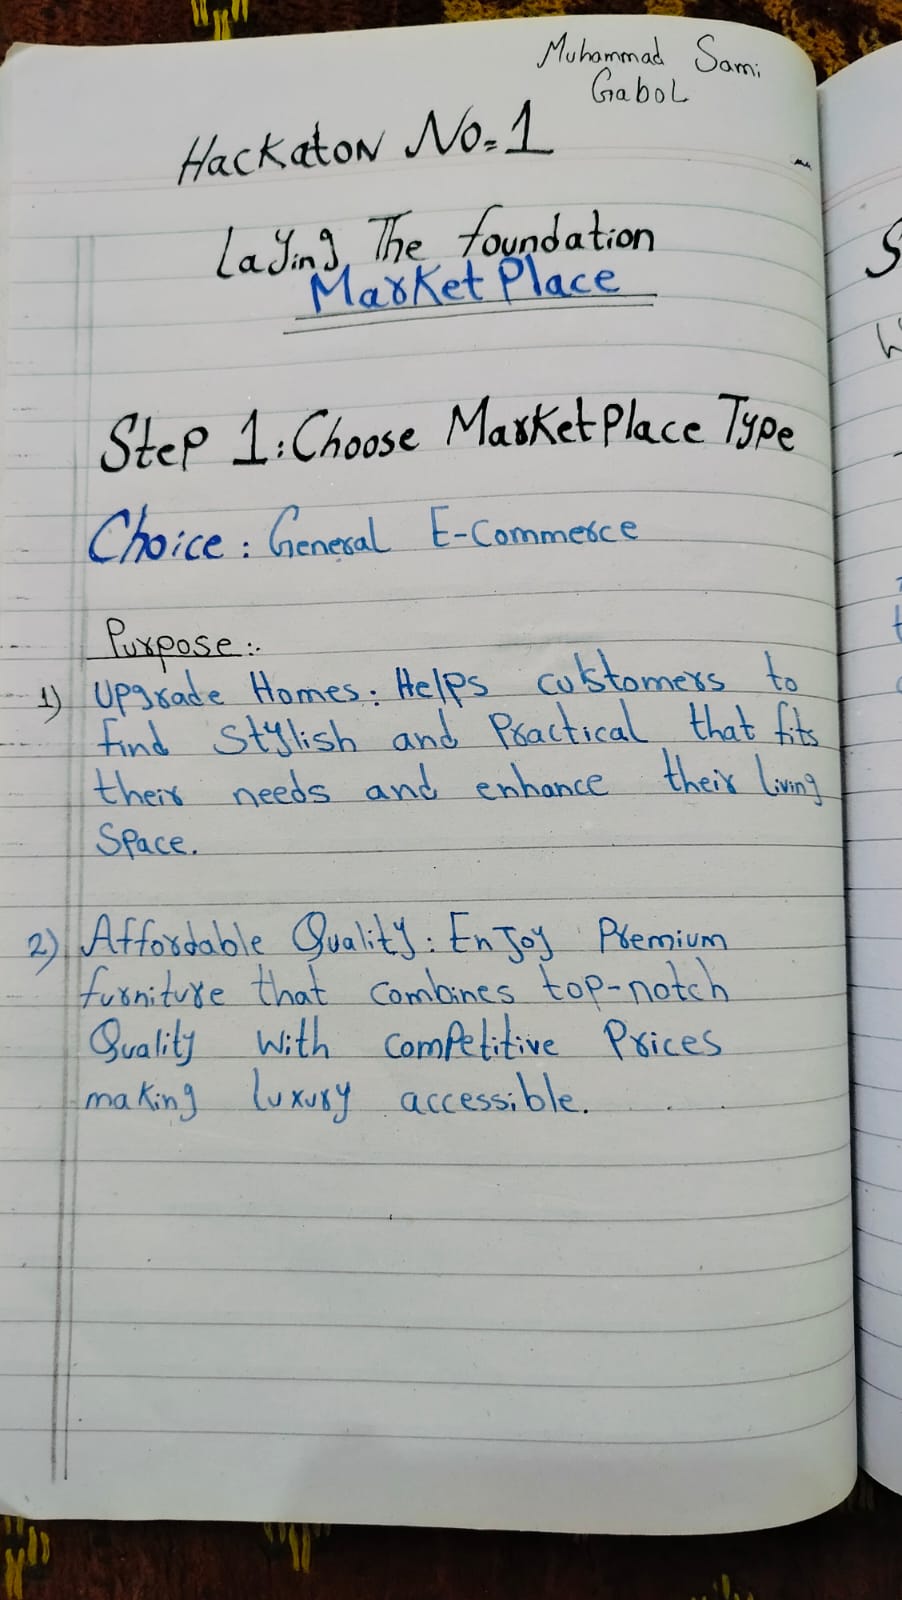 Muhammad Sami
Gabol
Hackaton No=1
Laying The foundation
MarketPlace
Step 1: Choose MarketPlace Type
Choice: General E-Commerce
Purpose:
1) Upgrade Homes: Helps customers to
find Stylish and Practical that fits
their needs and enhance their living
Space.
2) Affordable Quality: EnJoy Premium
furniture that combines top-notch
Quality with competitive Prices
making luxury accessible.